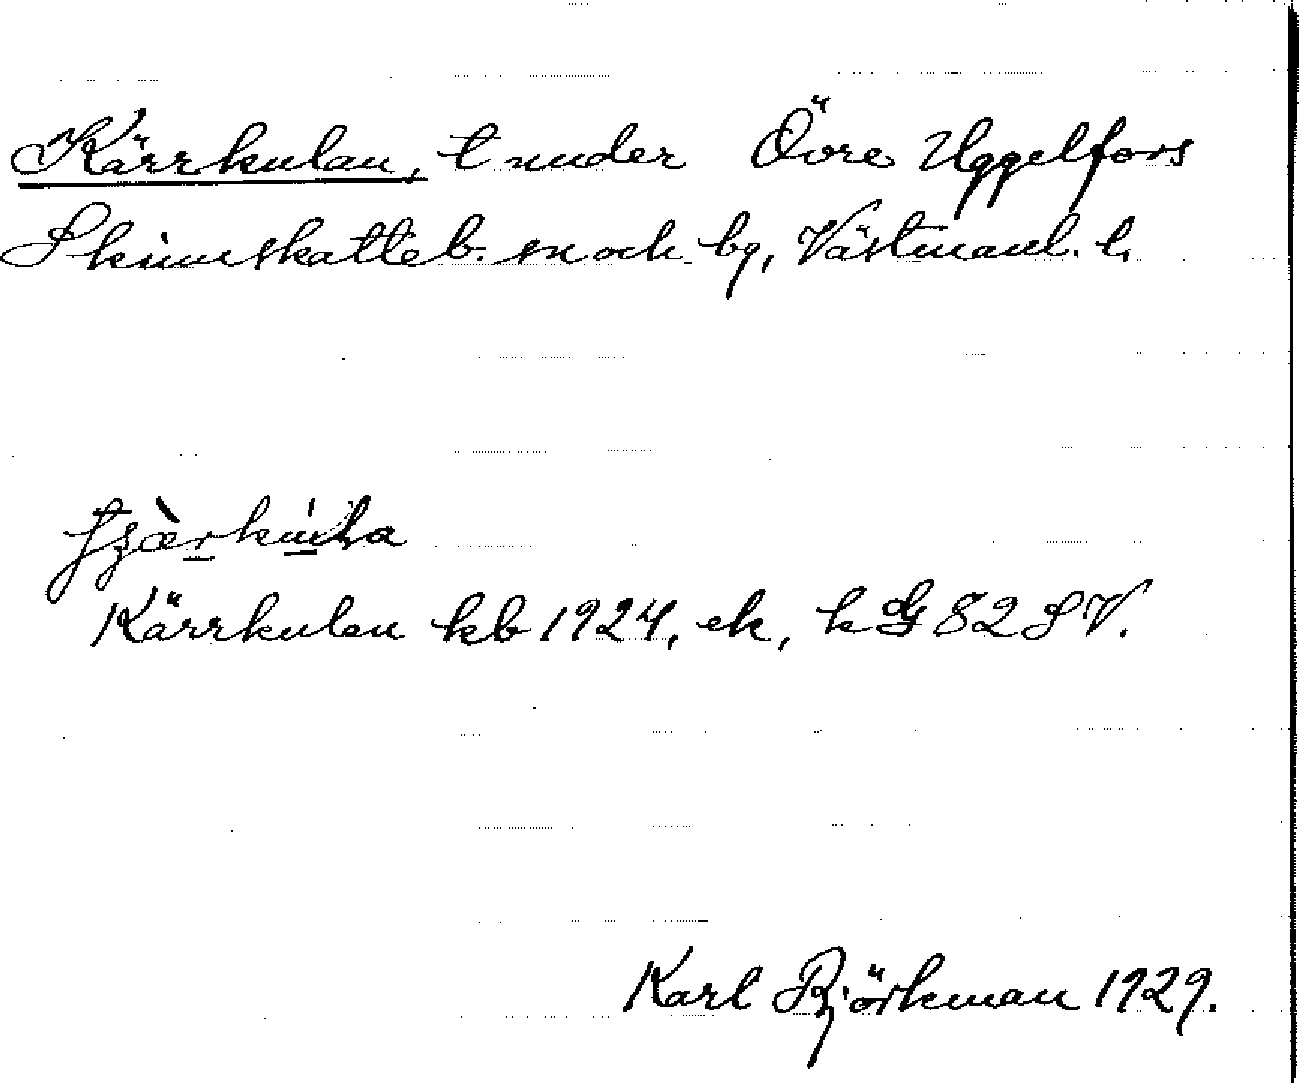 Kärrkulan, t under Övre Uggelfors
Skinnskatteb. sn och bg, Västmanl. l.
Kärrkulan kb 1924, ek, k G 82 SV.
Karl Björkman 1929.